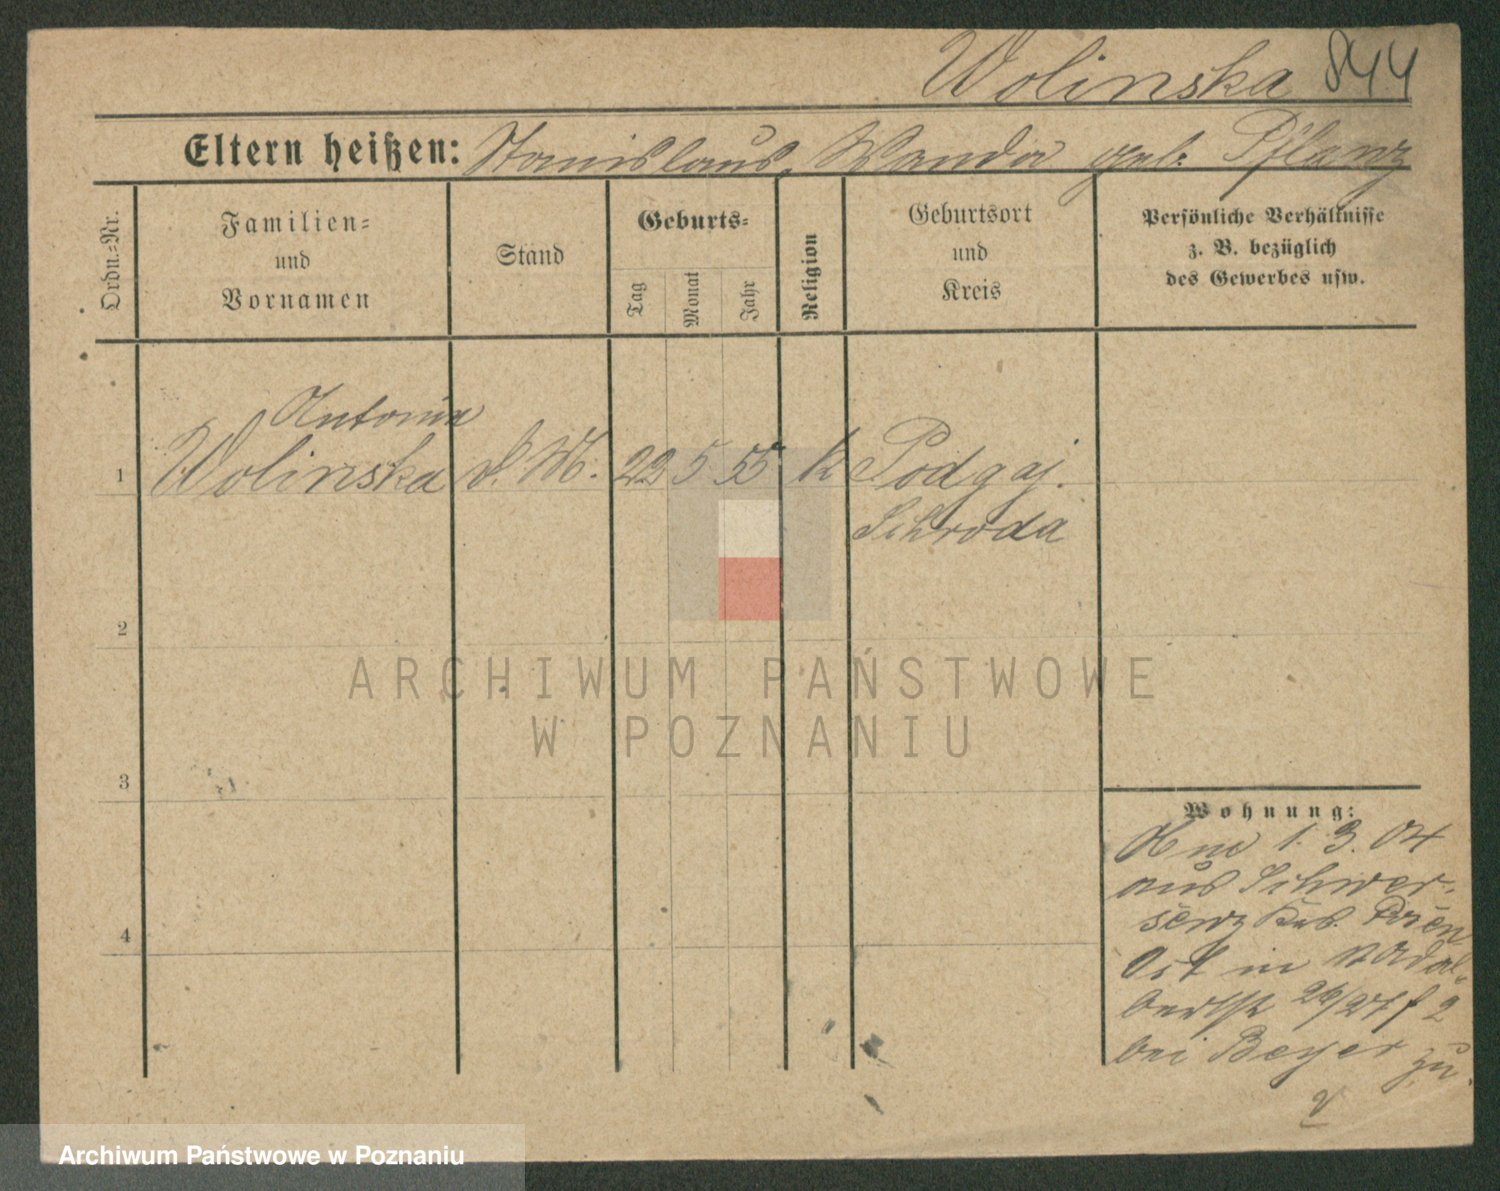 Wolinska 844
Eltern heißen: Stanislaus, Wanda geb. Pflanz
Ordn.-Nr.
Familien-
und
Vornamen
Stand
Geburts-
Tag
Monat
Jahr
Religion
Geburtsort
und
Kreis
Persönliche Verhältnisse
z. B. bezüglich
des Gewerbes usw.
Antonia
1 Wolinska d. M. 22 5 55 k Podgaj.
Schroda
2
3
4
Wohnung:
1. 3. 04
aus Schwer-
senz Krs. Posen
Ost in Adal-
bertstr 26/27 f 2
bei Beyer zu.
ARCHIWUM PAŃSTWOWE
W POZNANIU
Archiwum Państwowe w Poznaniu